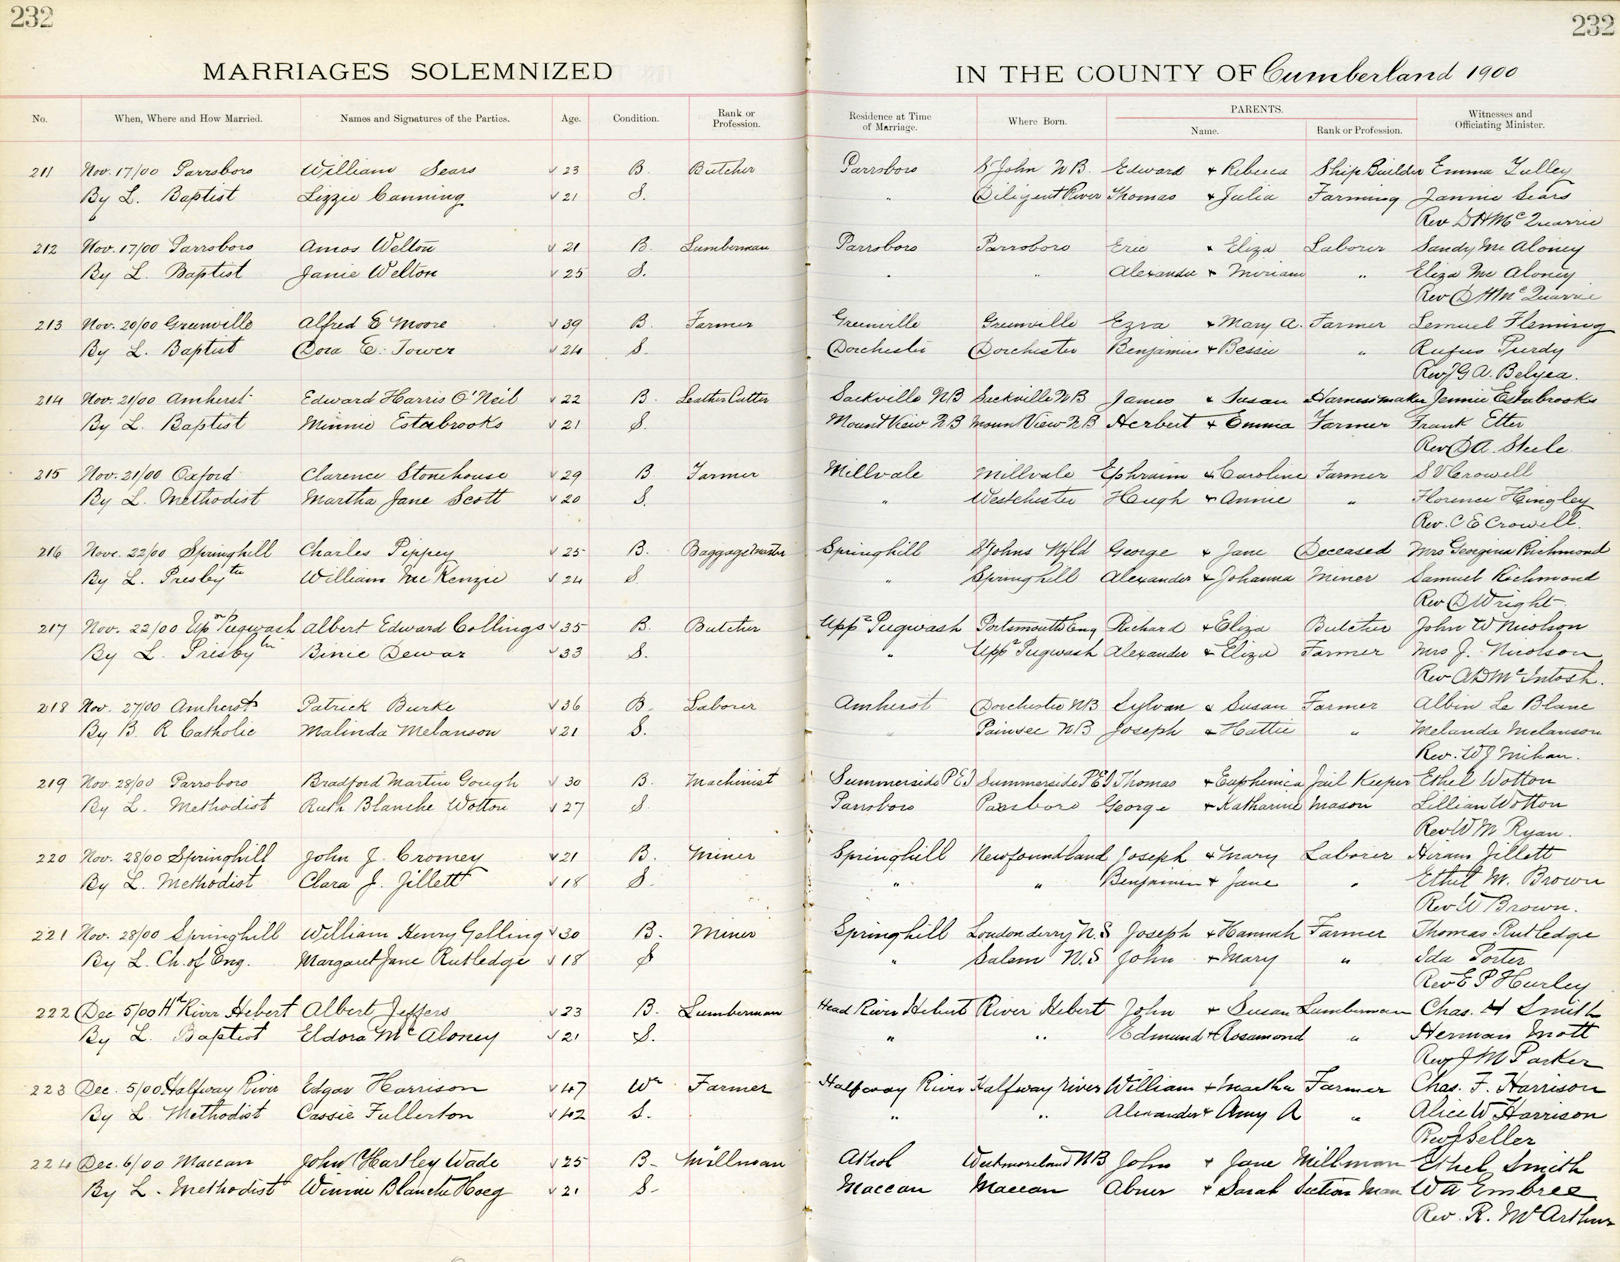 232
232
MARRIAGES SOLEMNIZED
IN THE COUNTY OF Cumberland 1900
No. When, Where and How Married. Names and Signatures of the Parties. Age. Condition. Rank or Profession. Residence at Time of Marriage. Where Born. PARENTS. Name. Rank or Profession. Witnesses and Officiating Minister.
211 Nov. 17/00 Parrsboro William Sears 23 B. Butcher Parrsboro St John N B. Edward + Rebecca Ship Builder Emma Tulley
By L. Baptist Lizzie Canning 21 S. " Diligent River Thomas + Julia Farming Jannie Sears
Rev D H McQuarrie
212 Nov. 17/00 Parrsboro Amos Welton 21 B. Lumberman Parrsboro Parrsboro Eric + Eliza Laborer Sandy McAloney
By L. Baptist Janie Welton 25 S. " " Alexander + Miriam " Eliza McAloney
Rev D H McQuarrie
213 Nov. 20/00 Greenville Alfred E Moore 39 B. Farmer Greenville Greenville Ezra + Mary A. Farmer Lemuel Fleming
By L. Baptist Dora E. Tower 24 S. Dorchester Dorchester Benjamin + Bessie " Rufus Purdy
Rev J G A. Belyea.
214 Nov. 21/00 Amherst Edward Harris O'Neil 22 B. Leather Cutter Sackville NB Sackville NB James + Susan Harnessmaker Jennie Estabrooks
By L. Baptist Minnie Estabrooks 21 S. Mount View NB Mount View NB Herbert + Emma Farmer Frank Etter
Rev D A. Steele
215 Nov. 21/00 Oxford Clarence Stonehouse 29 B Farmer Millvale Millvale Ephraim + Caroline Farmer S V Crowell
By L. Methodist Martha Jane Scott 20 S. " Westchester Hugh + Annie " Florence Hingley
Rev. C E Crowell.
216 Nov. 22/00 Springhill Charles Pippey 25 B. Baggage Master Springhill St Johns Nfld George + Jane Deceased Mrs Georgina Richmond
By L. Presbyten William McKenzie 24 S " Springhill Alexander + Johanna Miner Samuel Richmond
Rev D Wright
217 Nov. 22/00 Upr Pugwash Albert Edward Collings 35 B. Butcher Uppr Pugwash Portsmouth Eng Richard + Eliza Butcher John W Nicolson
By L. Presbytin Binie Dewar 33 S. " Uppr Pugwash Alexander + Eliza Farmer Mrs J. Nicolson
Rev A D McIntosh.
218 Nov. 27/00 Amherst Patrick Burke 36 B. Laborer Amherst Dorchester NB Sylvan + Susan Farmer Albin Le Blanc
By B. R Catholic Malinda Melanson 21 S. " Painsec NB Joseph + Hattie " Melanda Melanson
Rev. W J Mihan.
219 Nov 28/00 Parrsboro Bradford Martin Gough 30 B. Machinist Summerside P E I Summerside P E I Thomas + Euphemica Jail Keeper Ethel Wotton
By L. Methodist Ruth Blanche Wotton 27 S. Parrsboro Parrsboro George + Katharine Mason Lillian Wotton
Rev W M Ryan.
220 Nov. 28/00 Springhill John J. Cromey 21 B. Miner Springhill Newfoundland Joseph + Mary Laborer Hiram Jillett
By L. Methodist Clara J. Jillett 18 S. " " Benjamin + Jane " Ethel M. Brown
Rev W Brown.
221 Nov. 28/00 Springhill William Henry Gelling 30 B. Miner Springhill Londonderry N.S Joseph + Hannah Farmer Thomas Rutledge
By L. Ch. of Eng. Margaret Jane Rutledge 18 S " Salem N.S John + Mary " Ida Porter
Rev E P Hurley
222 Dec 5/00 Hd River Hebert Albert Jeffers 23 B. Lumberman Head River Hebert River Hebert John + Susan Lumberman Chas. H Smith
By L. Baptist Eldora McAloney 21 S. " " Edmund + Rosamond " Herman Mott
Rev J M Parker
223 Dec. 5/00 Halfway River Edgar Harrison 47 Wr Farmer Halfway River Halfway River William + Martha Farmer Chas. F. Harrison
By L. Methodist Cassie Fullerton 42 S. " " Alexander + Amy A " Alice W Harrison
Rev J Seller
224 Dec. 6/00 Maccan John Hartley Wade 25 B Millman Athol Westmoreland NB John + Jane Millman Ethel Smith
By L. Methodist Winnie Blanche Hoeg 21 S Maccan Maccan Abner + Sarah Section Man W A Embree
Rev. R. McArthur